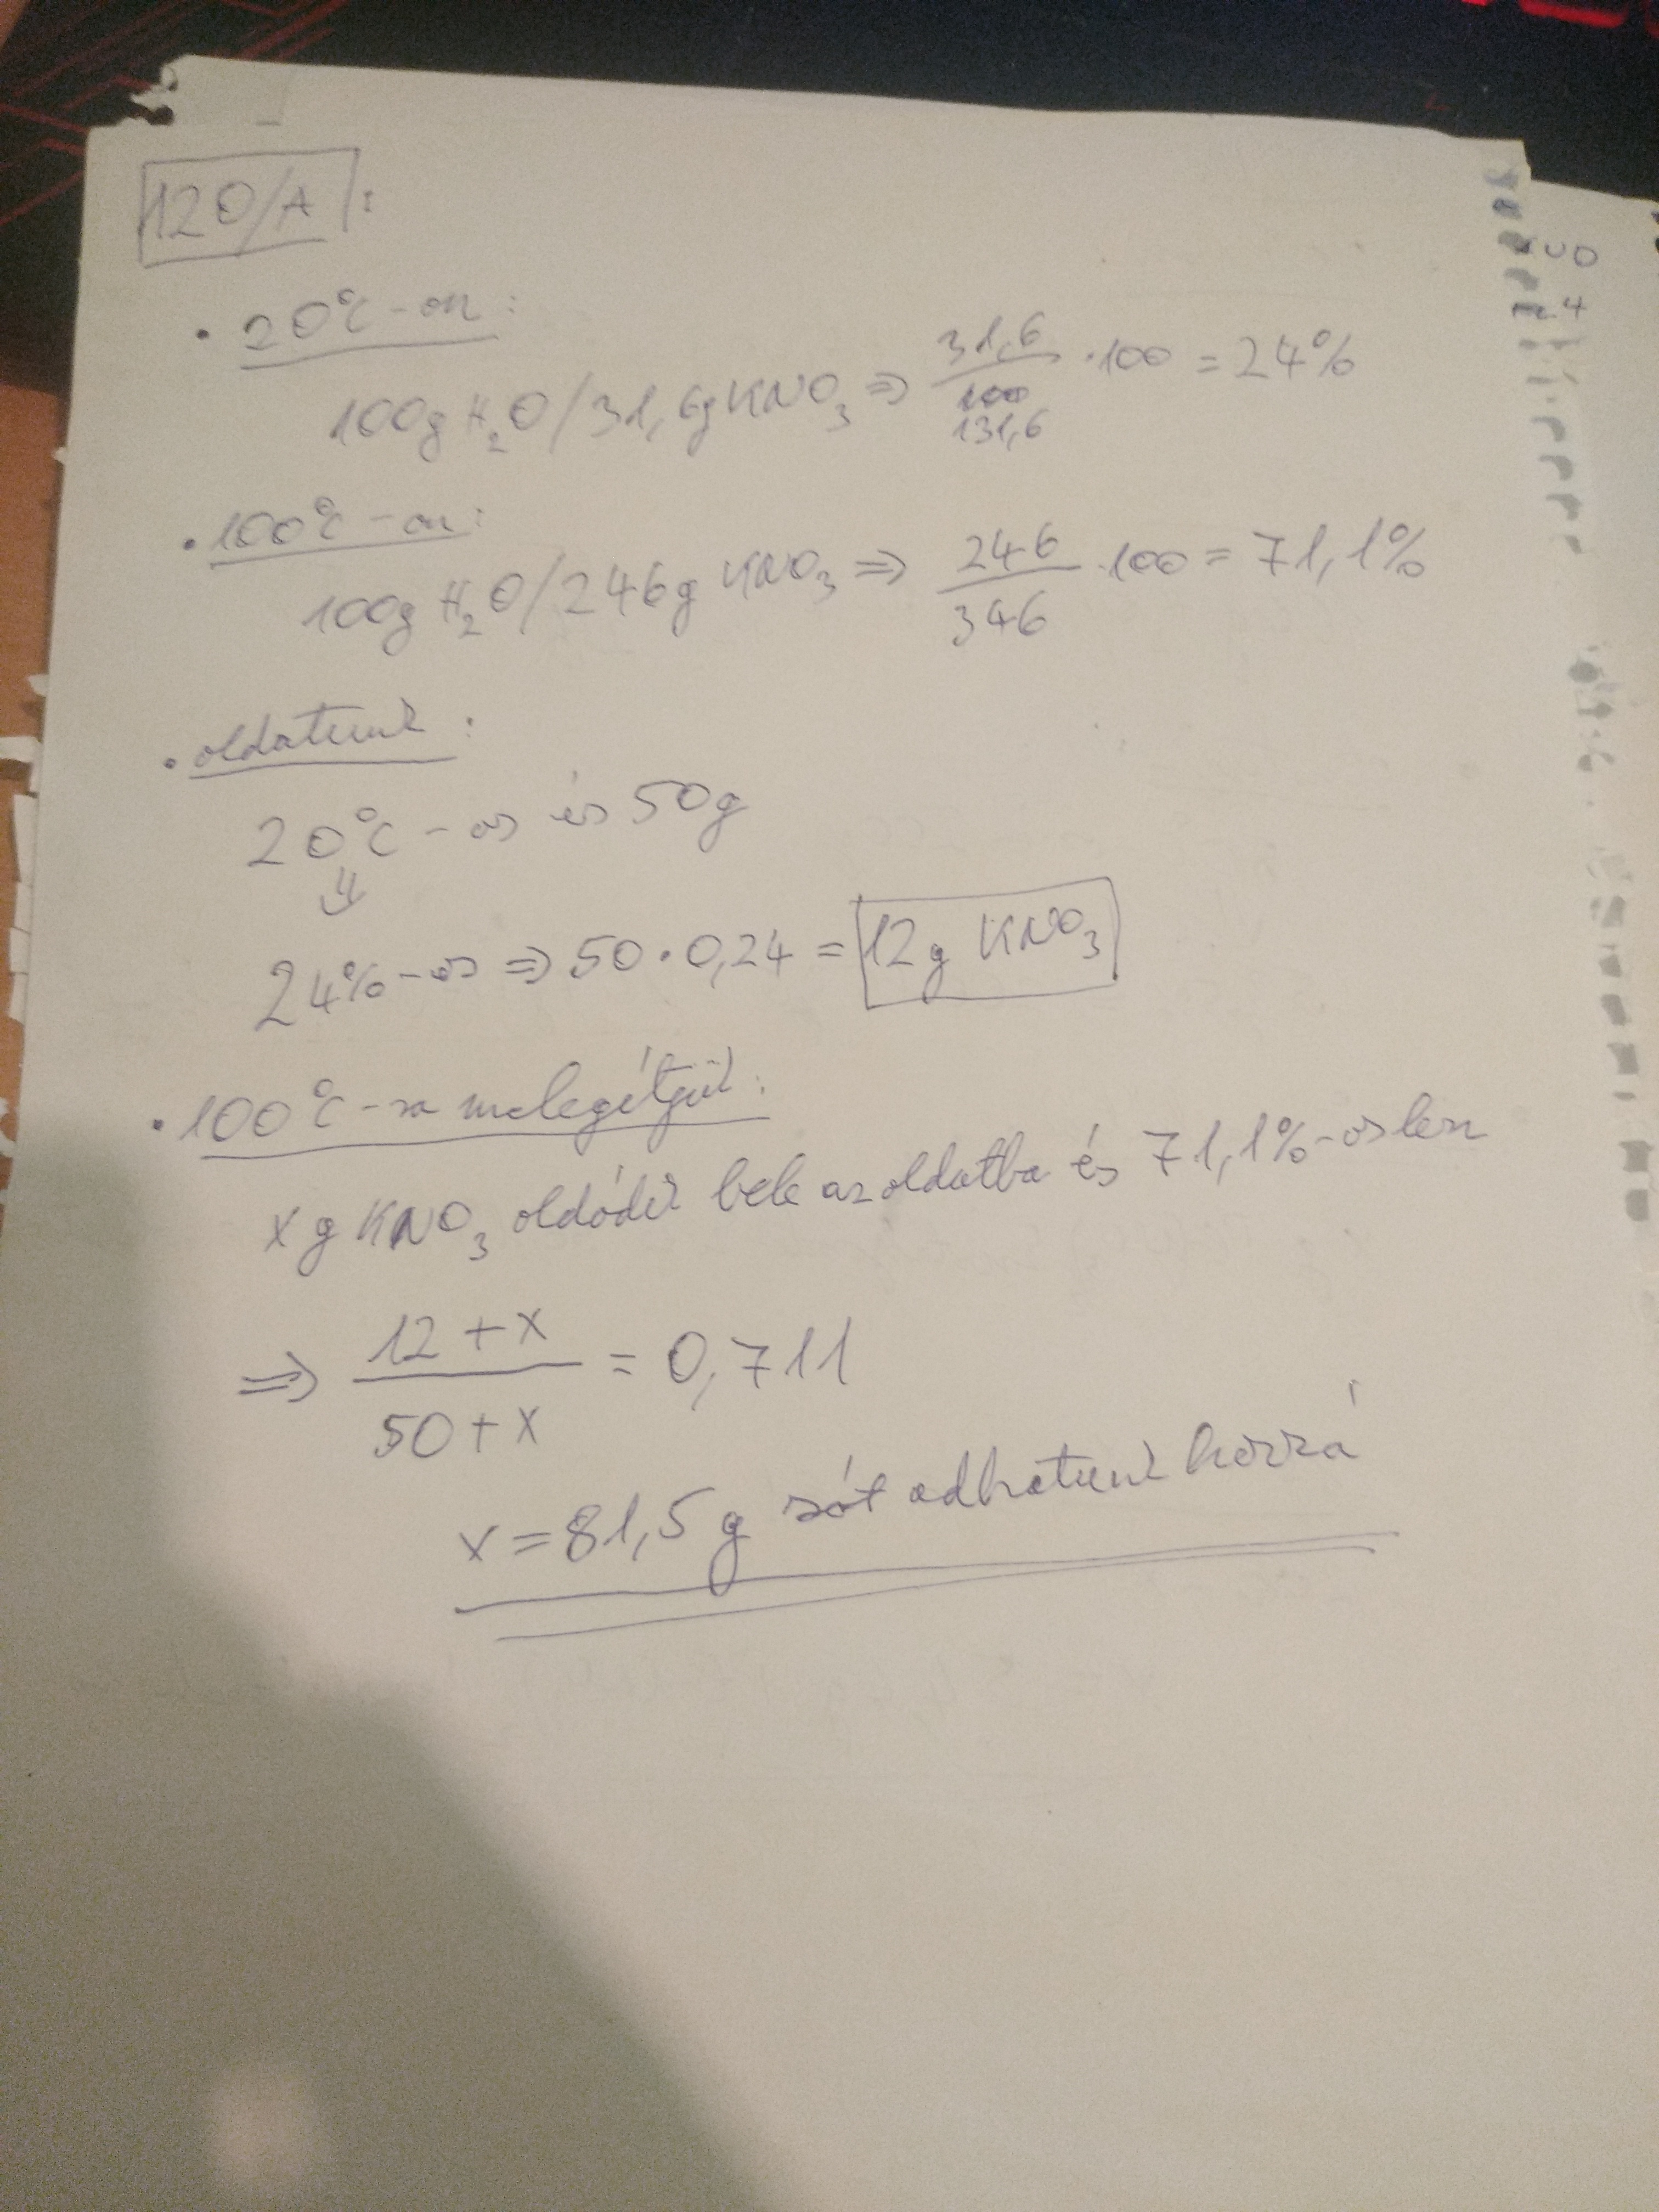 120/A:
• 20°C-on:
100g H₂O/31,6g KNO₃ ⇒ 31,6/131,6 · 100 = 24%
• 100°C-on:
100g H₂O/246g KNO₃ ⇒ 246/346 · 100 = 71,1%
• oldatunk:
20°C-os és 50g
⇓
24%-os ⇒ 50 · 0,24 = 12g KNO₃
• 100°C-ra melegítjük:
x g KNO₃ oldódik bele az oldatba és 71,1%-os lesz
⇒ 12+x/50+x = 0,711
x = 81,5 g sót adhatunk hozzá